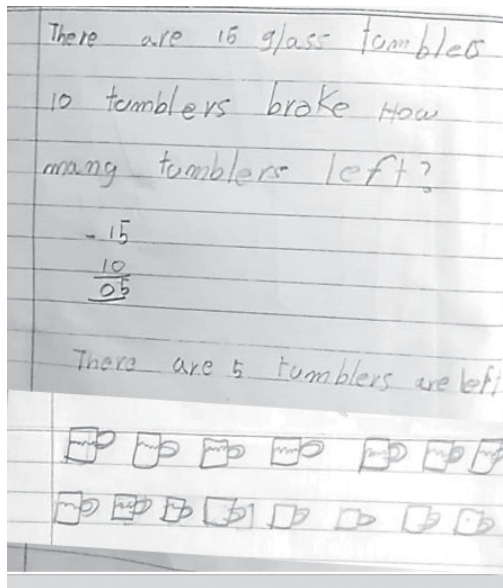 There are 15 glass tumbles
10 tumblers broke How
many tumblers left?
- 15
10
05
There are 5 tumblers are left